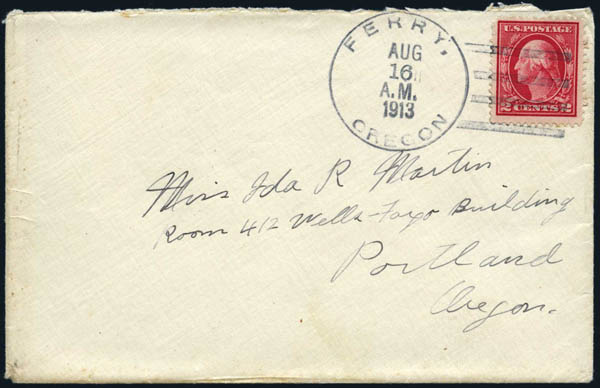 FERRY,
AUG
16
A.M.
1913
OREGON
U.S. POSTAGE
2 CENTS 2
Miss Ida R Martin
Room 412 Wells-Fargo Building
Portland
Oregon.